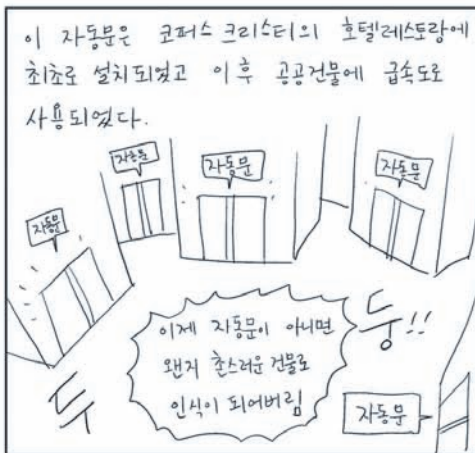 이 자동문은 코퍼스 크리스티의 호텔레스토랑에
최초로 설치되었고 이후 공공건물에 급속도로
사용되었다.
자동문
자동문
자동문
자동문
이제 자동문이 아니면
왠지 촌스러운 건물로
인식이 되어버림
두
둥!!
자동문